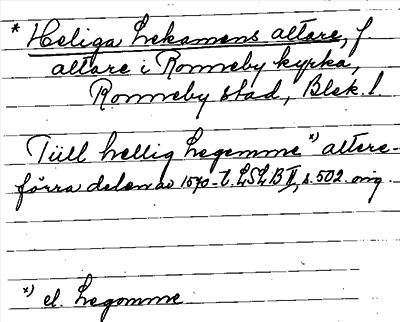 * Heliga Lekamens altare, f.
altare i Ronneby kyrka,
Ronneby stad, Blek. l.
Tüll hellig Legemme *) altere-
förra delen av 1540-t. LSLB II, s. 502. orig.
*) el. Legomme